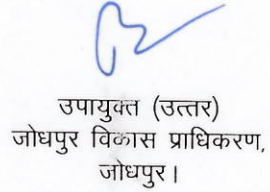 उपायुक्त (उत्तर)
जोधपुर विकास प्राधिकरण,
जोधपुर।